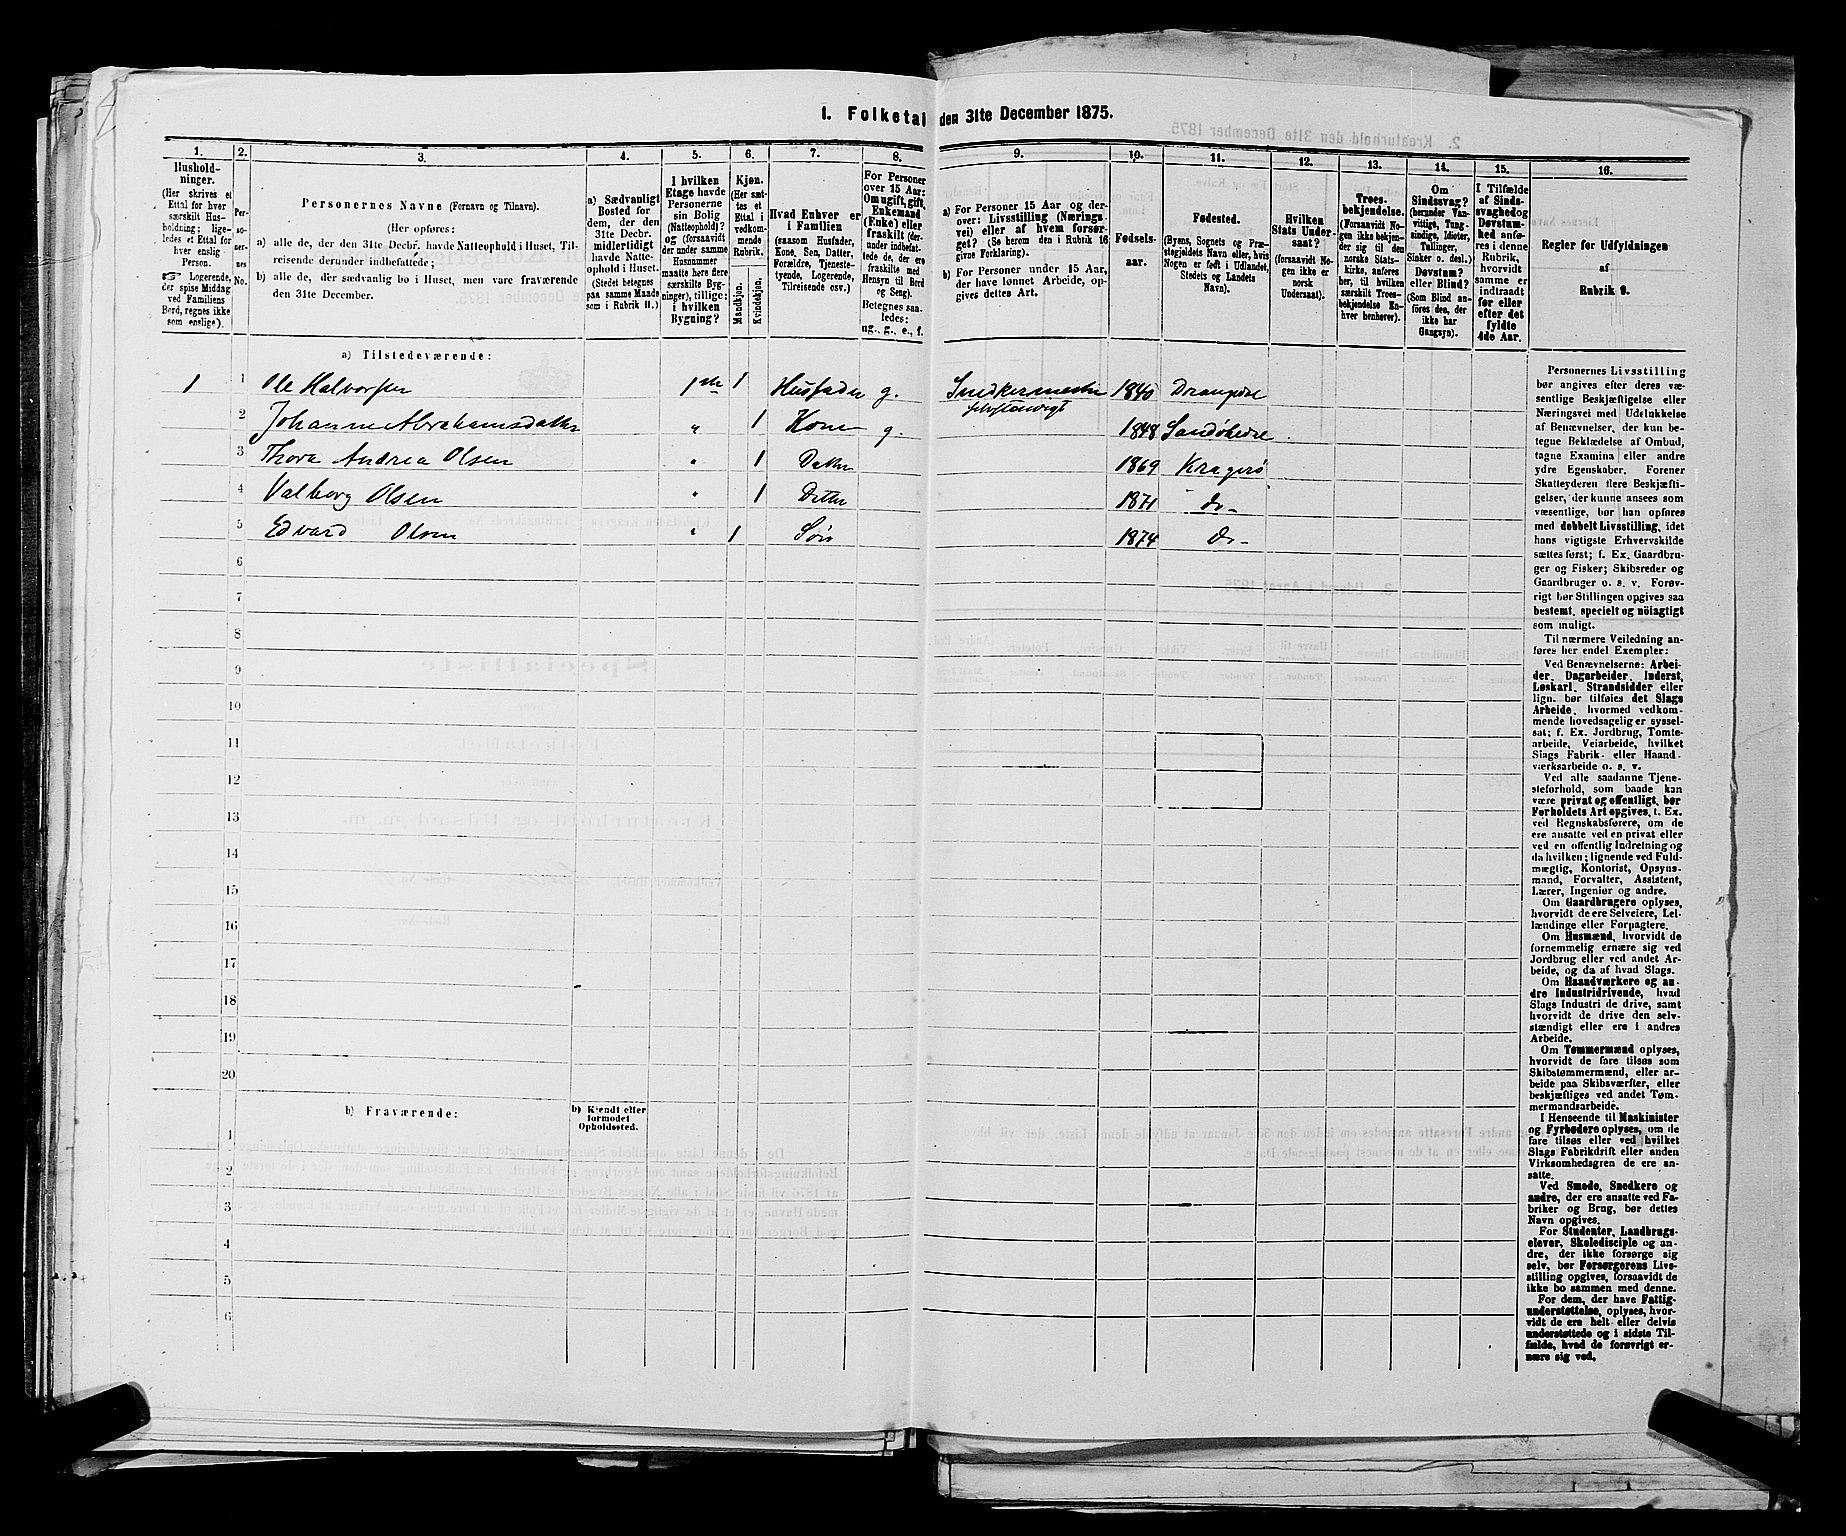 1. Folketal den 31te December 1875.
1.
Hushold-
ninger.
(Her skrives et
Ettal for hver
særskilt Hus-
holdning; lige-
ledes et Ettal for
hver enslig
Person.
☞ Logerende,
der spise Middag
ved Familiens
Bord, regnes ikke
som enslige).
2.
Per-
so-
ner-
nes
No.
3.
Personernes Navne (Fornavn og Tilnavn).
(Her opføres:
a) alle de, der den 31te Decbr. havde Natteophold i Huset, Til-
reisende derunder indbefattede;
b) alle de, der sædvanlig bo i Huset, men vare fraværende
den 31te December.
4.
a) Sædvanligt
Bosted for
dem, der den
31te Decbr.
midlertidigt
havde Natte-
ophold i Huset.
(Stedet betegnes
paa samme Maade
som i Rubrik 11.)
5.
I hvilken
Etage havde
Personerne
sin Bolig
(Natteophold)?
og (forsaavidt
der under samme
Husnummer
maatte høre flere
særskilte Byg-
ninger), tillige:
i hvilken
Bygning?
6.
Kjøn.
(Her sæt-
tes et
Ettal i
vedkom-
mende
Rubrik.
Mandkjøn.
Kvindekjøn.
7.
Hvad Enhver er
i Familien
(saasom Husfader,
Kone, Søn, Datter,
Forældre, Tjeneste-
tyende, Logerende,
Tilreisende osv.)
8.
For Personer
over 15 Aar:
Om ugift, gift,
Enkemand
(Enke) eller
fraskilt (der-
under indbefat-
tede de, der ere
fraskilte med
Hensyn til Bord
og Seng).
Betegnes saa-
ledes:
ug., g., e., f.
9.
a) For Personer 15 Aar og der-
over: Livsstilling (Nærings-
vei) eller af hvem forsør-
get? (Se herom den i Rubrik 16
givne Forklaring).
b) For Personer under 15 Aar,
der have lønnet Arbeide, op-
gives dettes Art.
10.
Fødsels-
aar.
11.
Fødested.
(Byens, Sognets og Præ-
stegjeldets Navn eller, hvis
Nogen er født i Udlandet,
Stedets og Landets
Navn).
12.
Hvilken
Stats Under-
saat?
(forsaavidt No-
gen ikke er
norsk
Undersaat).
13.
Troes-
bekjendelse.
(Forsaavidt No-
gen ikke bekjen-
der sig til den
norske Stats-
kirke, anføres
her, til hvilken
særskilt Troes-
bekjendelse En-
hver henhører).
14.
Om
Sindssvag?
(herunder Van-
vittige, Tung-
sindige, Idioter,
Tullinger,
Sinker o. desl.)
Døvstum?
eller Blind?
(Som Blind an-
føres den, der
ikke har
Gangsyn).
15.
I Tilfælde
af Sinds-
svaghed og
Døvstum-
hed anfø-
res i denne
Rubrik,
hvorvidt
samme er
indtraadt
før eller
efter det
fyldte
4de Aar.
16.
Regler for Udfyldningen
af
Rubrik 9.
a) Tilstedeværende:
1 1 Ole Halvorsen 1ste 1 Husfader g. Snedkermester 1840
selvstændigt
2 Johanne Abrahamsdatter " 1 Kone g. 1848 Sandøkedre
3 Thora Andrea Olsen " 1 Datter 1869 Kragerø
4 Valborg Olsen " 1 Datter 1871 do-
5 Edvard Olsen " 1 Søn 1874 do-
6
7
8
9
10
11
12
13
14
15
16
17
18
19
20
b) Fraværende:
b) Kjendt eller
formodet
Opholdssted.
1
2
3
4
5
6
Personernes Livsstilling
bør angives efter deres væ-
sentlige Beskjæftigelse eller
Næringsvei med Udelukkelse
af Benævnelser, der kun be-
tegne Beklædelse af Ombud,
tagne Examina eller andre
ydre Egenskaber. Forener
Skatteyderen flere Beskjæfti-
gelser, der kunne ansees som
væsentlige, bør han opføres
med dobbelt Livsstilling, idet
hans vigtigste Erhvervskilde
sættes først; f. Ex. Gaardbru-
ger og Fisker; Skibsreder og
Gaardbruger o. s. v. Forøv-
rigt bør Stillingen opgives saa
bestemt, specielt og nöiagtigt
som muligt.
Til nærmere Veiledning an-
føres her endel Exempler:
Ved Benævnelserne: Arbei-
der, Dagarbeider, Inderst,
Løskarl, Strandsidder eller
lign. bør tilføies det Slags
Arbeide, hvormed vedkom-
mende hovedsagelig er syssel-
sat; f. Ex. Jordbrug, Tomte-
arbeide, Veiarbeide, hvilket
Slags Fabrik- eller Haand-
værksarbeide o. s. v.
Ved alle saadanne Tjene-
steforhold, som baade kan
være privat og offentligt, bør
Forholdets Art opgives, t. Ex.
ved Regnskabsførere, om de
ere ansatte ved en privat eller
ved en offentlig Indretning og
da hvilken; lignende ved Fuld-
mægtig, Kontorist, Opsyns-
mand, Forvalter, Assistent,
Lærer, Ingeniør og andre.
Om Gaardbrugere oplyses,
hvorvidt de ere Selveiere, Lei-
lændinge eller Forpagtere.
Om Husmænd, hvorvidt de
fornemmelig ernære sig ved
Jordbrug eller ved andet Ar-
beide, og da af hvad Slags.
Om Haandværkere og an-
dre Industridrivende, hvad
Slags Industri de drive, samt
hvorvidt de drive den selv-
stændigt eller ere i andres
Arbeide.
Om Tømmermænd oplyses,
hvorvidt de fare tilsøs som
Skibstømmermænd, eller ar-
beide paa Skibsværfter, eller
beskjæftiges ved andet Tøm-
mermandsarbeide.
I Henseende til Maskinister
og Fyrbødere oplyses, om de
fare tilsøs eller ved hvilket
Slags Fabrikdrift eller anden
Virksomhedsgren de ere an-
satte.
Ved Smede, Snedkere og
andre, der ere ansatte ved Fa-
briker og Brug, bør dettes
Navn opgives.
For Studenter, Landbrugs-
elever, Skoledisciple og an-
dre, der ikke forsørge sig
selv, bør Forsørgerens Livs-
stilling opgives, forsaavidt de
ikke bo sammen med denne.
For dem, der have Fattig-
understøttelse, oplyses, hvor-
vidt de ere helt eller delvis
understøttede og i sidste Til-
fælde, hvad de forøvrigt er-
nære sig ved.